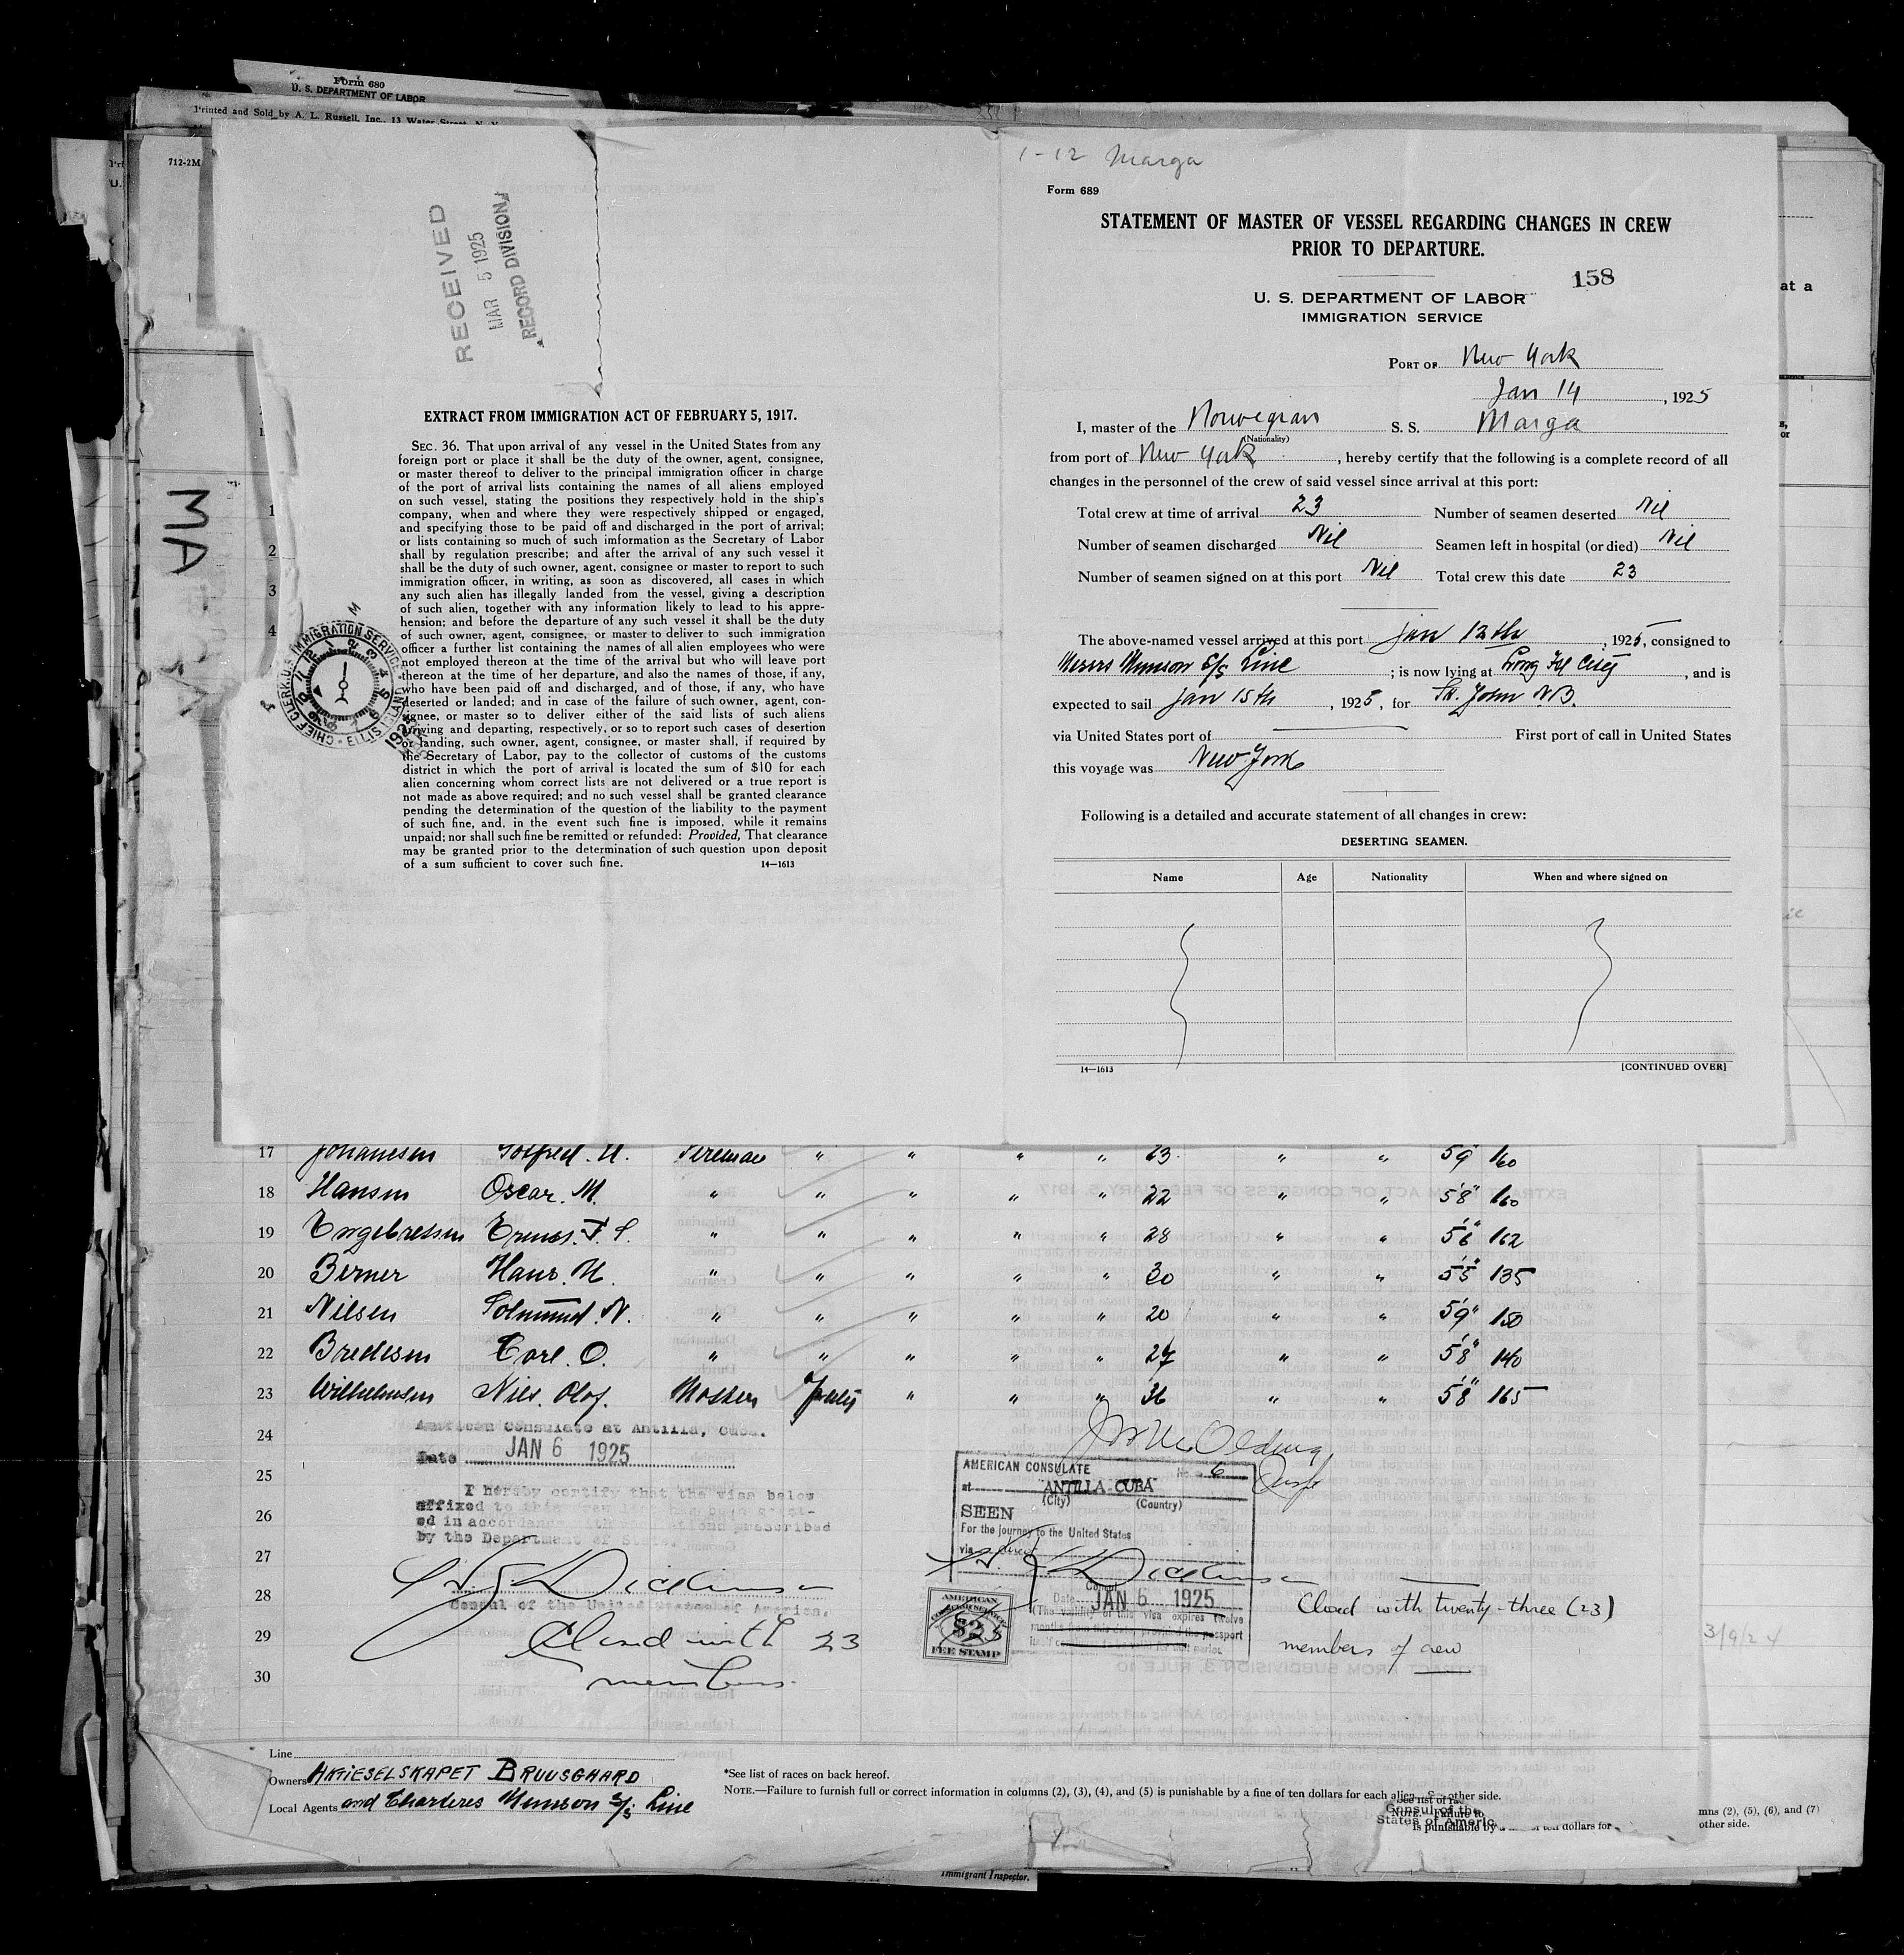 Form 680
U. S. DEPARTMENT OF LABOR
Printed and Sold by A. L. Russell, Inc., 13 Water Street, N. Y.
712-2M
MA
1
2
3
4
RECEIVED
MAR 5 1925
RECORD DIVISION
EXTRACT FROM IMMIGRATION ACT OF FEBRUARY 5, 1917.
SEC. 36. That upon arrival of any vessel in the United States from any
foreign port or place it shall be the duty of the owner, agent, consignee,
or master thereof to deliver to the principal immigration officer in charge
of the port of arrival lists containing the names of all aliens employed
on such vessel, stating the positions they respectively hold in the ship's
company, when and where they were respectively shipped or engaged,
and specifying those to be paid off and discharged in the port of arrival;
or lists containing so much of such imformation as the Secretary of Labor
shall by regulation prescribe; and after the arrival of any such vessel it
shall be the duty of such owner, agent, consignee or master to report to such
immigration officer, in writing, as soon as discovered, all cases in which
any such alien has illegally landed from the vessel, giving a description
of such alien, together with any information likely to lead to his appre-
hension; and before the departure of any such vessel it shall be the duty
of such owner, agent, consignee, or master to deliver to such immigration
officer a further list containing the names of all alien employees who were
not employed thereon at the time of the arrival but who will leave port
thereon at the time of her departure, and also the names of those, if any,
who have been paid off and discharged, and of those, if any, who have
deserted or landed; and in case of the failure of such owner, agent, con-
signee, or master so to deliver either of the said lists of such aliens
arriving and departing, respectively, or so to report such cases of desertion
or landing, such owner, agent, consignee, or master shall, if required by
the Secretary of Labor, pay to the collector of customs of the customs
district in which the port of arrival is located the sum of $10 for each
alien concerning whom correct lists are not delivered or a true report is
not made as above required; and no such vessel shall be granted clearance
pending the determination of the question of the liability to the payment
of such fine, and, in the event such fine is imposed, while it remains
unpaid; nor shall such fine be remitted or refunded: Provided, That clearance
may be granted prior to the determination of such question upon deposit
of a sum sufficient to cover such fine. 14—1613
CHIEF CLERK U.S. IMMIGRATION SERVICE ELLIS ISLAND
1-12 Marga
Form 689
STATEMENT OF MASTER OF VESSEL REGARDING CHANGES IN CREW
PRIOR TO DEPARTURE.
158
U. S. DEPARTMENT OF LABOR
IMMIGRATION SERVICE
PORT OF New York
Jan 14, 1925
I, master of the Norwegian S. S. Marga
(Nationality)
from port of New York, hereby certify that the following is a complete record of all
changes in the personnel of the crew of said vessel since arrival at this port:
Total crew at time of arrival 23 Number of seamen deserted Nil
Number of seamen discharged Nil Seamen left in hospital (or died) Nil
Number of seamen signed on at this port Nil Total crew this date 23
The above-named vessel arrived at this port Jan 12th, 1925, consigned to
Messrs Munson S/S Line; is now lying at Long Isl City, and is
expected to sail Jan 15th, 1925, for St. John N.B.
via United States port of First port of call in United States
this voyage was New York
Following is a detailed and accurate statement of all changes in crew:
DESERTING SEAMEN.
Name Age Nationality When and where signed on
14—1613 [CONTINUED OVER]
at a
17 Johansen Fireman " " " " 23 " " 5'9" 160
18 Hansen Oscar. M. " " " " " 22 " " 5'8" 160
19 Engebretsen " " " " " 28 " " 5'6" 162
20 Berner Hans. H. " " " " " 30 " " 5'5" 135
21 Nilsen N. " " " " " 20 " " 5'9" 150
22 Bredesen Carl. O. " " " " " 27 " " 5'8" 140
23 Wilhelmsen Nils. Olof. " " " " 36 " " 5'8" 165
24
25
26
27
28
29
30
American Consulate at Antilla, Cuba.
Date JAN 6 1925
I hereby certify that the visa below
affixed to this crew
ed in accordance with prescribed
by the Department of State.
Dickinson
Consul of the United States of America.
Closed with 23
members.
AMERICAN CONSULATE No. 6
at ANTILLA CUBA
(City) (Country)
SEEN
For the journey to the United States
via
Dickinson
Consul
Date JAN 6 1925
(The validity of this visa expires twelve
AMERICAN
CONSULAR SERVICE
$2
FEE STAMP
Closed with twenty-three (23)
members of crew
3/9/24
Line
Owners AKTIESELSKAPET BRUUSGAARD
Local Agents and Charteres Munson S/S Line
*See list of races on back hereof.
NOTE.—Failure to furnish full or correct information in columns (2), (3), (4), and (5) is punishable by a fine of ten dollars for each alien. See other side.
Consul of the
States of Americ
is punishable by ten dollars for
mns (2), (5), (6), and (7)
other side.
Immigrant Inspector.